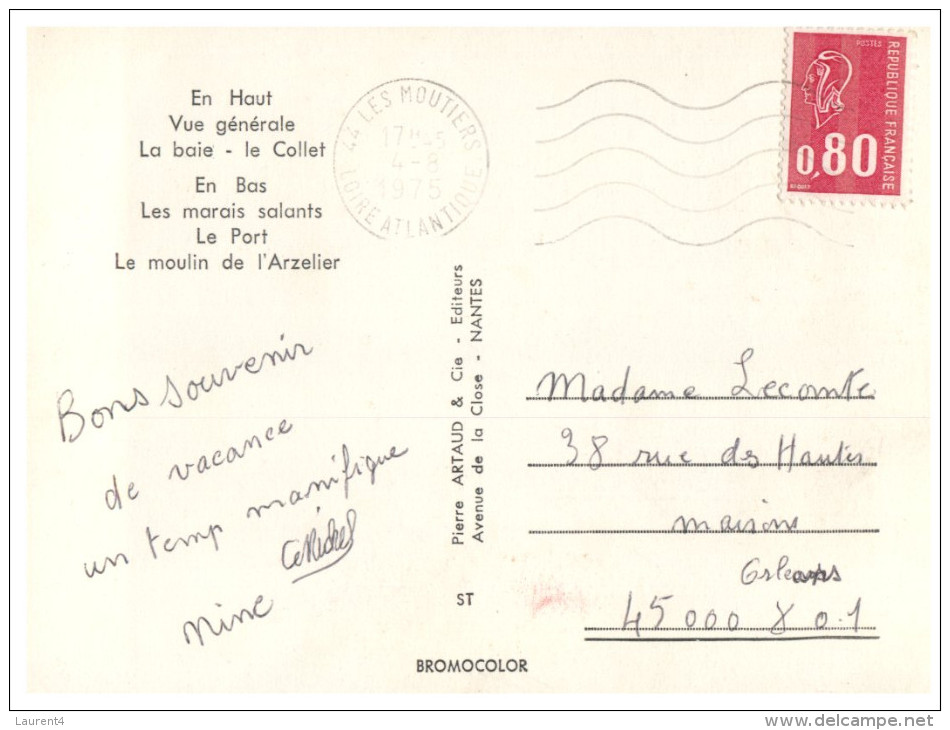 En Haut
Vue générale
La baie - le Collet
En Bas
Les marais salants
Le Port
Le moulin de l'Arzelier
44 LES MOUTIERS
17H-5
4-8
1975
LOIRE ATLANTIQUE
POSTES
REPUBLIQUE FRANÇAISE
0,80
BEQUET
Bons souvenir
de vacance
un temp manifique
Mimi
Pierre ARTAUD & Cie - Editeurs
Avenue de la Close - NANTES
ST
BROMOCOLOR
Madame Lecomte
38 rue des Hautes
maisons
Orleans
45000 801
Laurent4
www.delcampe.net